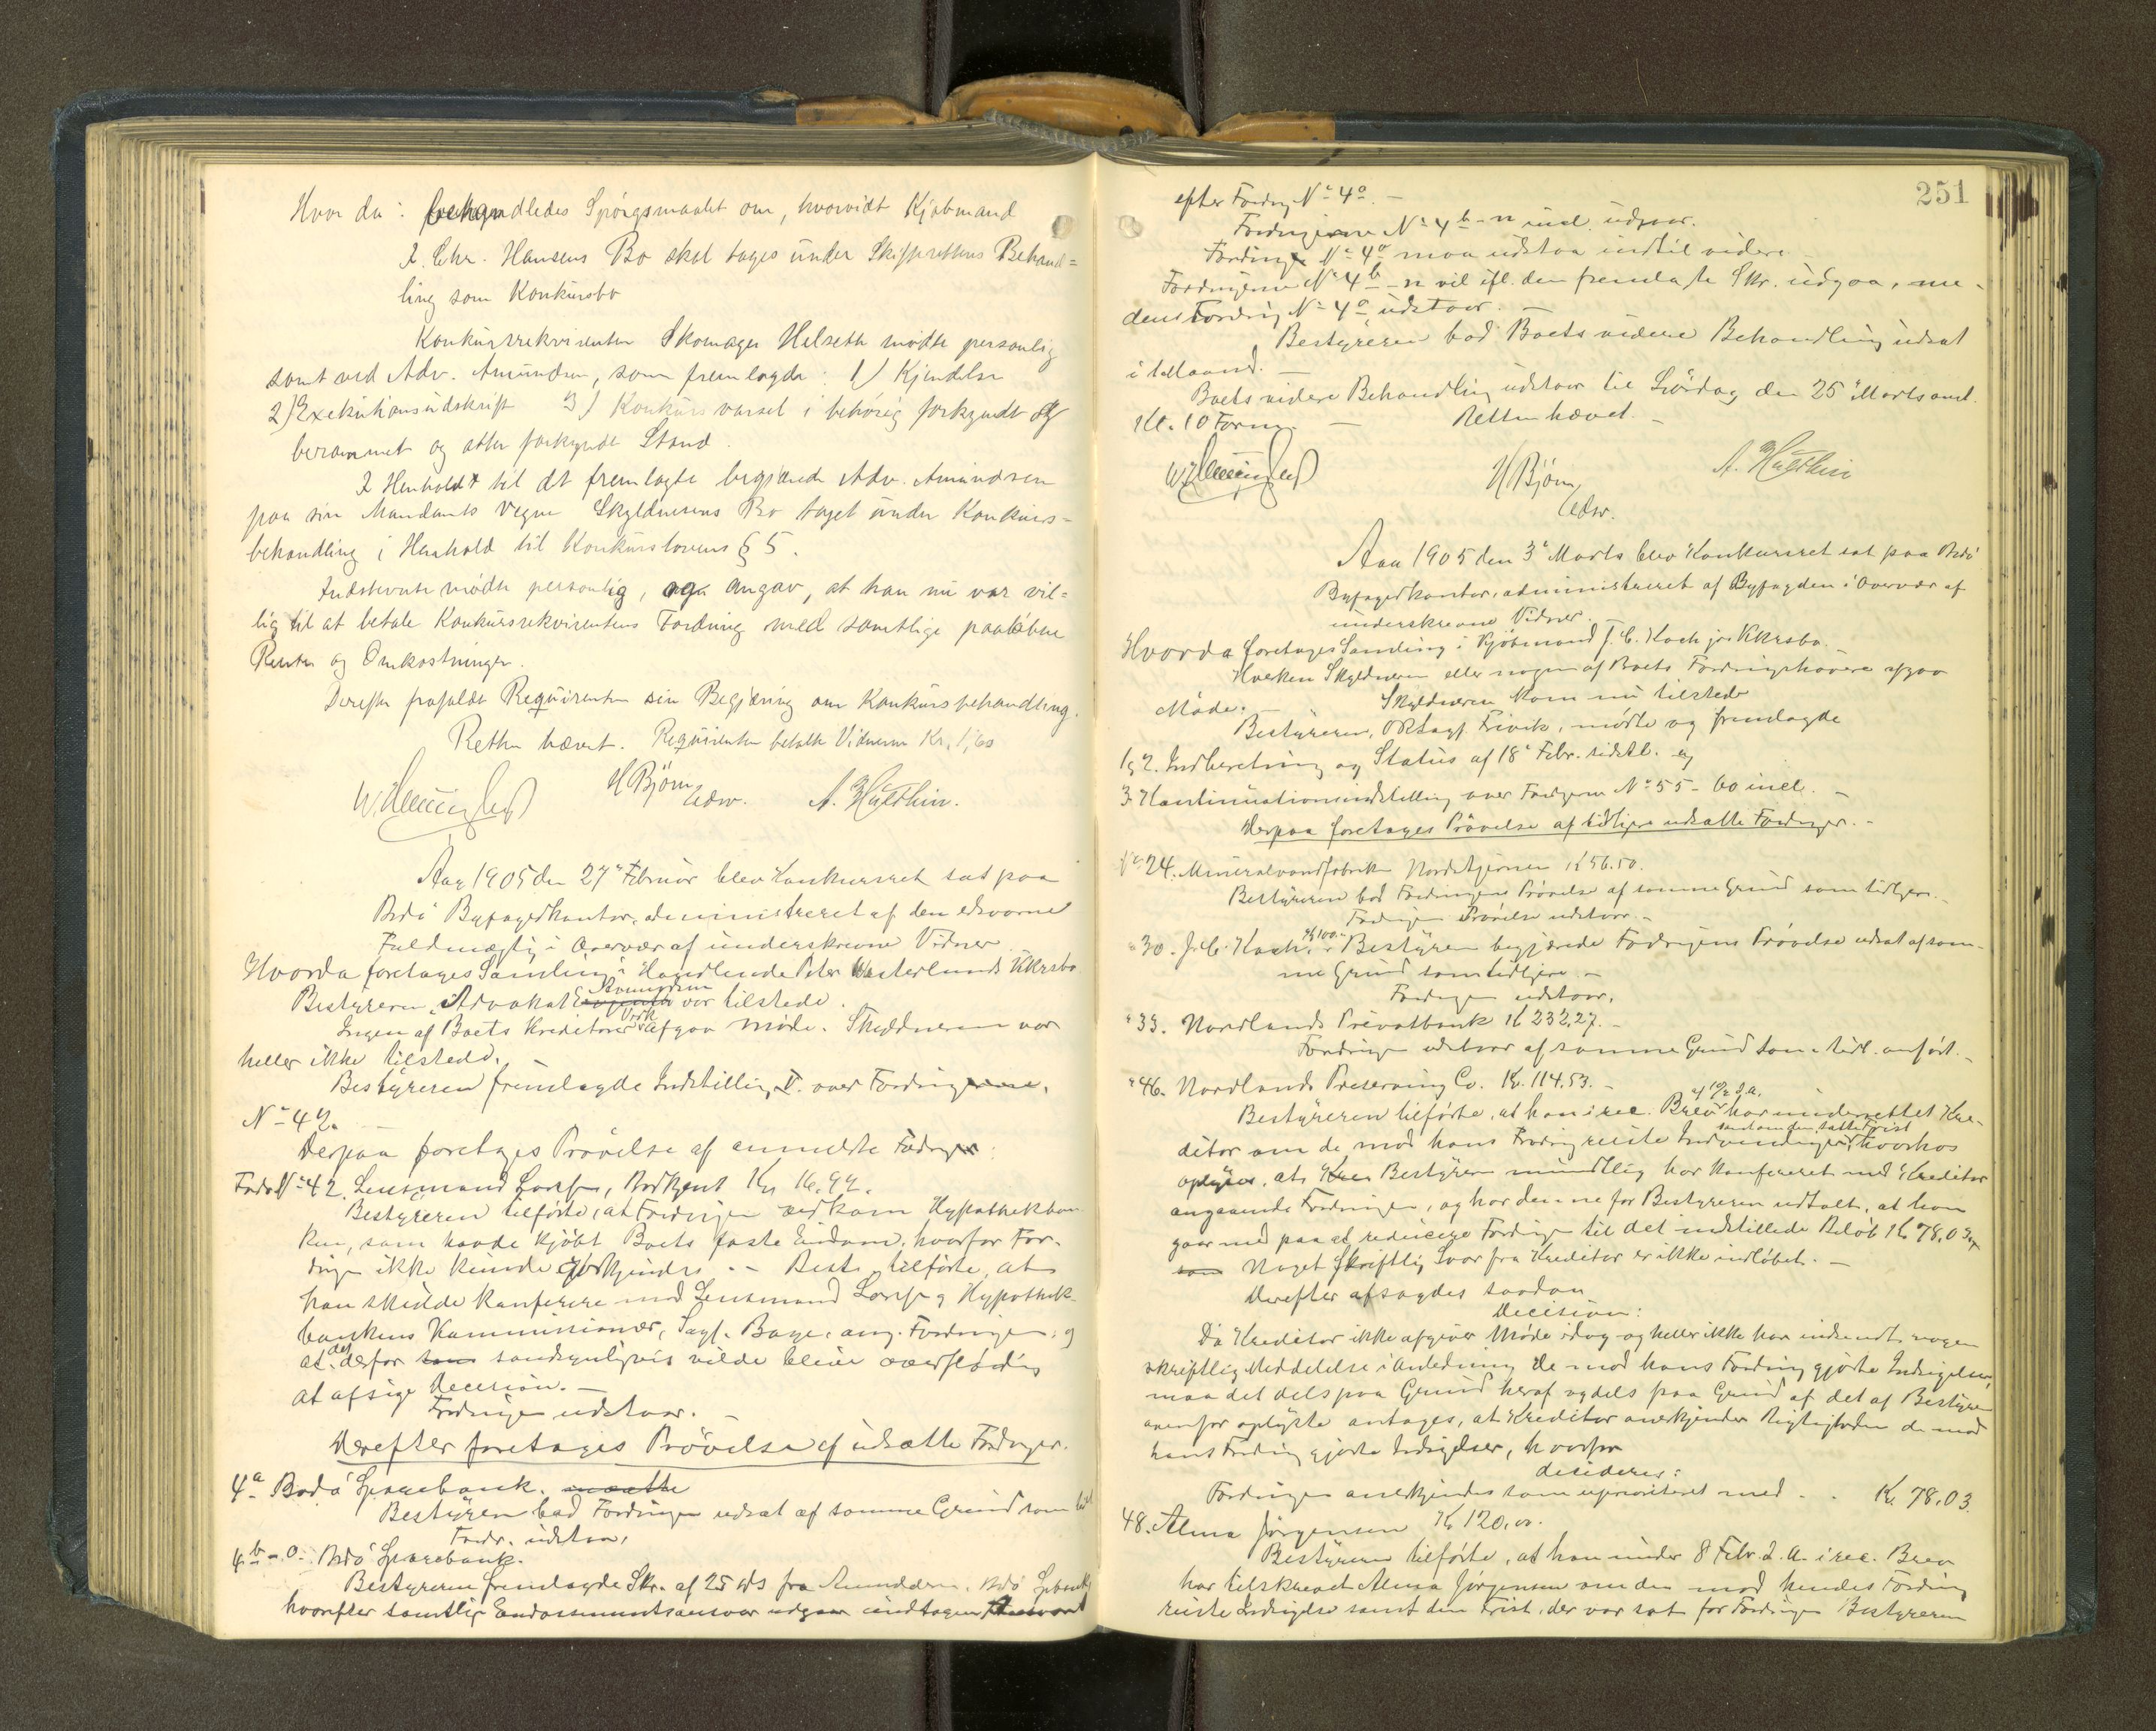 Hvor da: behandledes Spörgsmaalet om, hvorvidt Kjøbmand
J. Chr. Hansens Bo skal tages under Skifterettens Behand=
ling som Konkursbo
Konkursrekvirenten Skomager Helseth mødte personlig
samt ved Adv. Amundsen, som fremlagde: 1) Kjendelse
2) Exekutionsudskrift 3) Konkursvarsel i behørig forkyndt og
berammet og atter forkyndt Stand.
I Henhold til det fremlagte begjærede Adv. Amundsen
paa sin Mandants Vegne Skyldnerens Bo taget under Konkurs=
behandling i Henhold til Konkurslovens § 5.
Indstevnte mødte personlig, og angav, at han nu var vil=
lig til at betale Konkursrekvirentens Fordring med samtlige paaløbne
Renter og Omkostninger.
Derefter frafaldt Requirenten sin Begjæring om Konkursbehandling.
Retten hævet. Requirenten betalte Vidnerne Kr. 1,60
H Bjørn
Edw.
A. Hulthin.
Aar 1905 den 27' Februar blev Konkursret sat paa
Bodö Byfogedkontor, administreret af den edsvorne
Fuldmægtig i Overvær af underskrevne Vidner
Hvorda foretages Samling i Handlende Peter Westerlunds Kkrsbo.
Bestyreren, Advokat Amundsen var tilstede.
Ingen af Boets Kreditorer afgav Møde. Skyldneren var
heller ikke tilstede. –
Bestyreren fremlagde Indstilling V. over Fordring
No 42. –
Derpaa foretages Prövelse af anmeldte Fordringer:
Fordr No 42. Lensmand Bodkjent Kr. 16.92.
Bestyreren tilførte, at Fordringen vedkom Hypothekban-
ken, som havde kjöbt Boets faste Eiendom, hvorfor For-
dringen ikke kunde godkjendes. – Best. tilförte, at
han skulde konferere med Lensmand og Hypothek-
bankens Kommissionær, Sagf. Baye, ang. Fordringen, og
at det derfor sandsynligvis vilde blive overflødig
at afsige Decision. –
Fordringen udstaar. –
Derefter foretages Prövelse af udsatte Fordringer.
4a Bodö Sparebank.
Bestyreren bad Fordringen udsat af samme Grund som tidl
Fordr. udstaar.
4b – o. Bodö Sparebank.
Bestyreren fremlagde Skr. af 25 ds fra Amundsen, Bodö Spbank,
hvorefter samtlige Endossementsansvar udgaar undtagen
251
efter Fordring No 4o. –
Fordringerne No 4b – n incl. udgaar.
Fordring No 4o maa udstaa indtil videre
Fordringerne No 4b – n vil ifl. den fremlagte Skr. udgaa, me-
dens Fordring No 4o udstaar. –
Bestyreren bad Boets videre Behandling udsat
i 1 Maaned. –
Boets videre Behandling udstaar til Lørdag den 25' Marts anst.
Kl. 10 Form. – Retten hævet. –
H Bjørn
Edw.
A. Hulthin
Aar 1905 den 3' Marts blev Konkursret sat paa Bodö
Byfogedkontor, administreret af Byfogden i Overvær af
underskrevne Vidner. –
Hvorda foretages Samling i Kjöbmand J. C. Koch jrs Kkrsbo.
Hverken Skyldneren eller nogen af Boets Fordringshavere afgav
Møde. – Skyldneren kom nu tilstede
Bestyreren, ORsagf. Frivik, mødte og fremlagde
1 g 2. Indberetning og Status af 18' Febr. sidstl. og
3. Kontinuationsindstilling over Fordrgerne No 55 – 60 incl. –
Derpaa foretages Prövelse af tidligere udsatte Fordringer. –
No 24. Mineralvandfabrik Nordstjernen K 56.50.
Bestyreren bad Fordringens Prövelse af samme Grund som tidligere. –
Fordringens Prövelse udstaar. –
" 30. J. C. Koch. K 100. – Bestyreren begjærede Fordringens Prövelse udsat af sam-
me Grund som tidligere. –
Fordringen udstaar.
" 33. Nordlands Privatbank K 232.27. –
Fordringen udstaar af samme Grund som tidl. anført. –
" 46. Nordlands Preserving Co. Kr. 114.53. –
Bestyreren tilførte, at han i rec. Brev af d. A. har underrettet Kre-
ditor om de mod hans Fordring reiste Indvendinger samt om den satte Frist, hvorhos
oplyses, at Bestyreren mundtlig har konfereret med Kreditor
angaaende Fordringen, og har denne for Bestyreren udtalt, at han
gaar med paa at reducere Fordringen til det indstillede Beløb K 78.03.
Noget skriftlig Svar fra Kreditor er ikke indløbet. –
Derefter afsagdes saadan
Decision:
Da Kreditor ikke afgiver Møde idag og heller ikke har indsendt nogen
skriftlig Meddelelse i Anledning de mod hans Fordring gjorte Indsigelser,
maa det dels paa Grund heraf og dels paa Grund af det af Bestyreren
ovenfor oplyste antages, at Kreditor anerkjender Rigtigheden de mod
hans Fordring gjorte Indsigelser, hvorfor
decideres:
Fordringen anerkjendes som uprioriteret med . . Kr. 78.03.
48. Alma Jörgensen K 120.00.
Bestyreren tilförte, at han under 8 Febr. d. A. i rec. Brev
har tilskrevet Alma Jörgensen om den mod hendes Fordring
reiste Indsigelse samt den Frist, der var sat for Fordringen Bestyreren